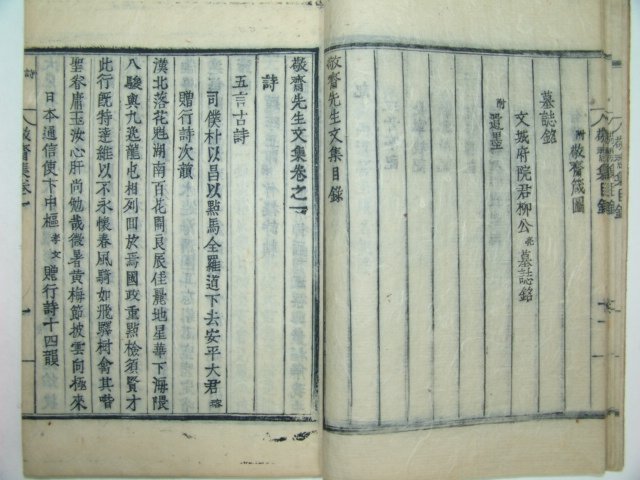 附敬齋箴圖
墓誌銘
文城府院君柳公亮墓誌銘
附遺墨
敬齋先生文集目錄
敬齋先生文集卷之一
詩
五言古詩
司僕朴以昌以點馬全羅道下去安平大君瑢
贈行詩次韻
漢北落花魁湖南百花開良辰佳麗地星華下海隈
八駿與九逸龍也相列回於焉國政重點檢須賢才
此行旣特達維以不永懷春風騎如飛驛樹禽其喈
聖眷庸玉汝心肝尚勉哉微暑黃梅節披雲向極來
日本通信使卞中樞孝文贈行詩十四韻
詩
敬齋集卷一